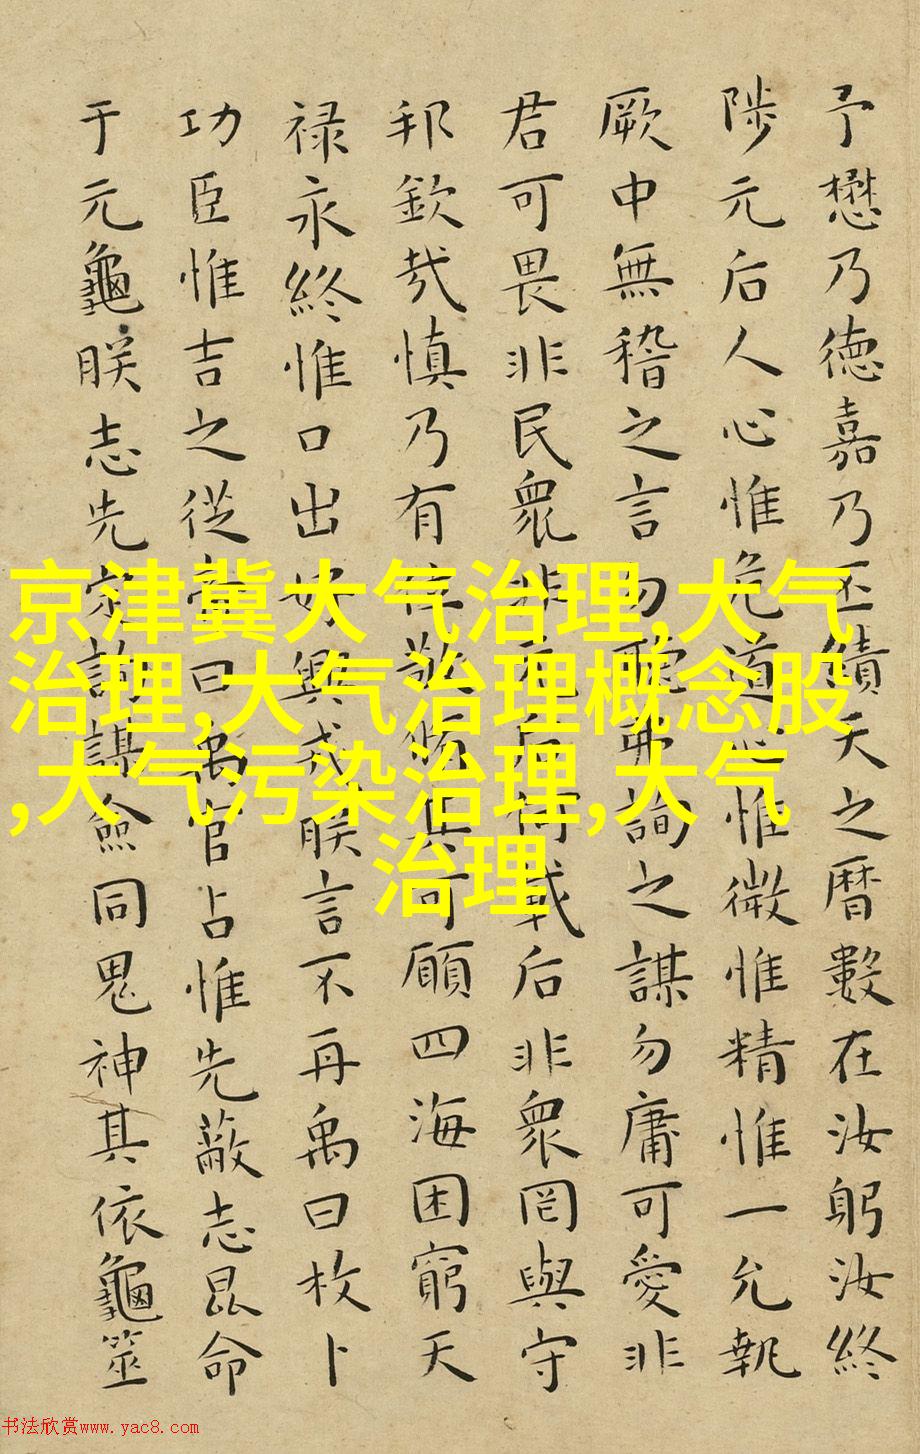 予懋乃德嘉乃丕績天之曆數在汝躬汝終
陟元后人心惟危道心惟微惟精惟一允執
厥中無稽之言勿聽弗詢之謀勿庸可愛非
君可畏非民衆非元后何戴后非衆罔與守
邦欽哉慎乃有位敬脩其可願四海困窮天
禄永終惟口出好興戎朕言不再禹曰枚卜
功臣惟吉之從帝曰禹官占惟先蔽志昆命
于元龜朕志先定詢謀僉同鬼神其依龜筮
京津冀大气治理,大气
治理,大气治理概念股
,大气污染治理,大气
治理
书法欣赏www.yac8.com